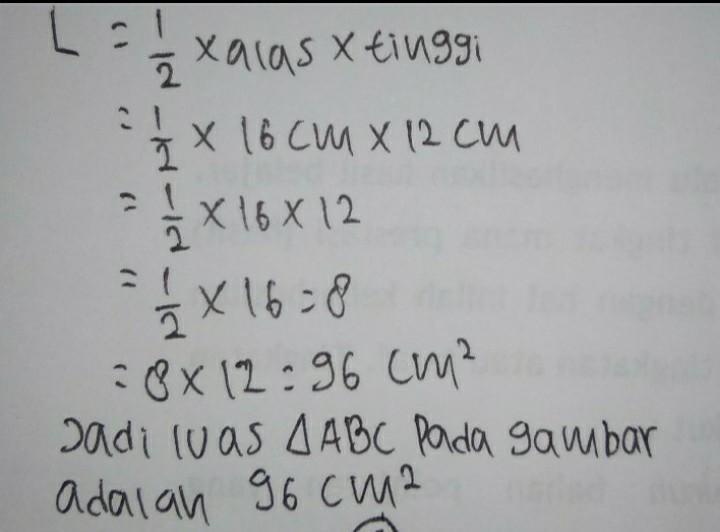 L = 1/2 x alas x tinggi
= 1/2 x 16 cm x 12 cm
= 1/2 x 16 x 12
= 1/2 x 16 = 8
= 8 x 12 = 96 cm²
Jadi luas △ABC pada gambar
adalah 96 cm²